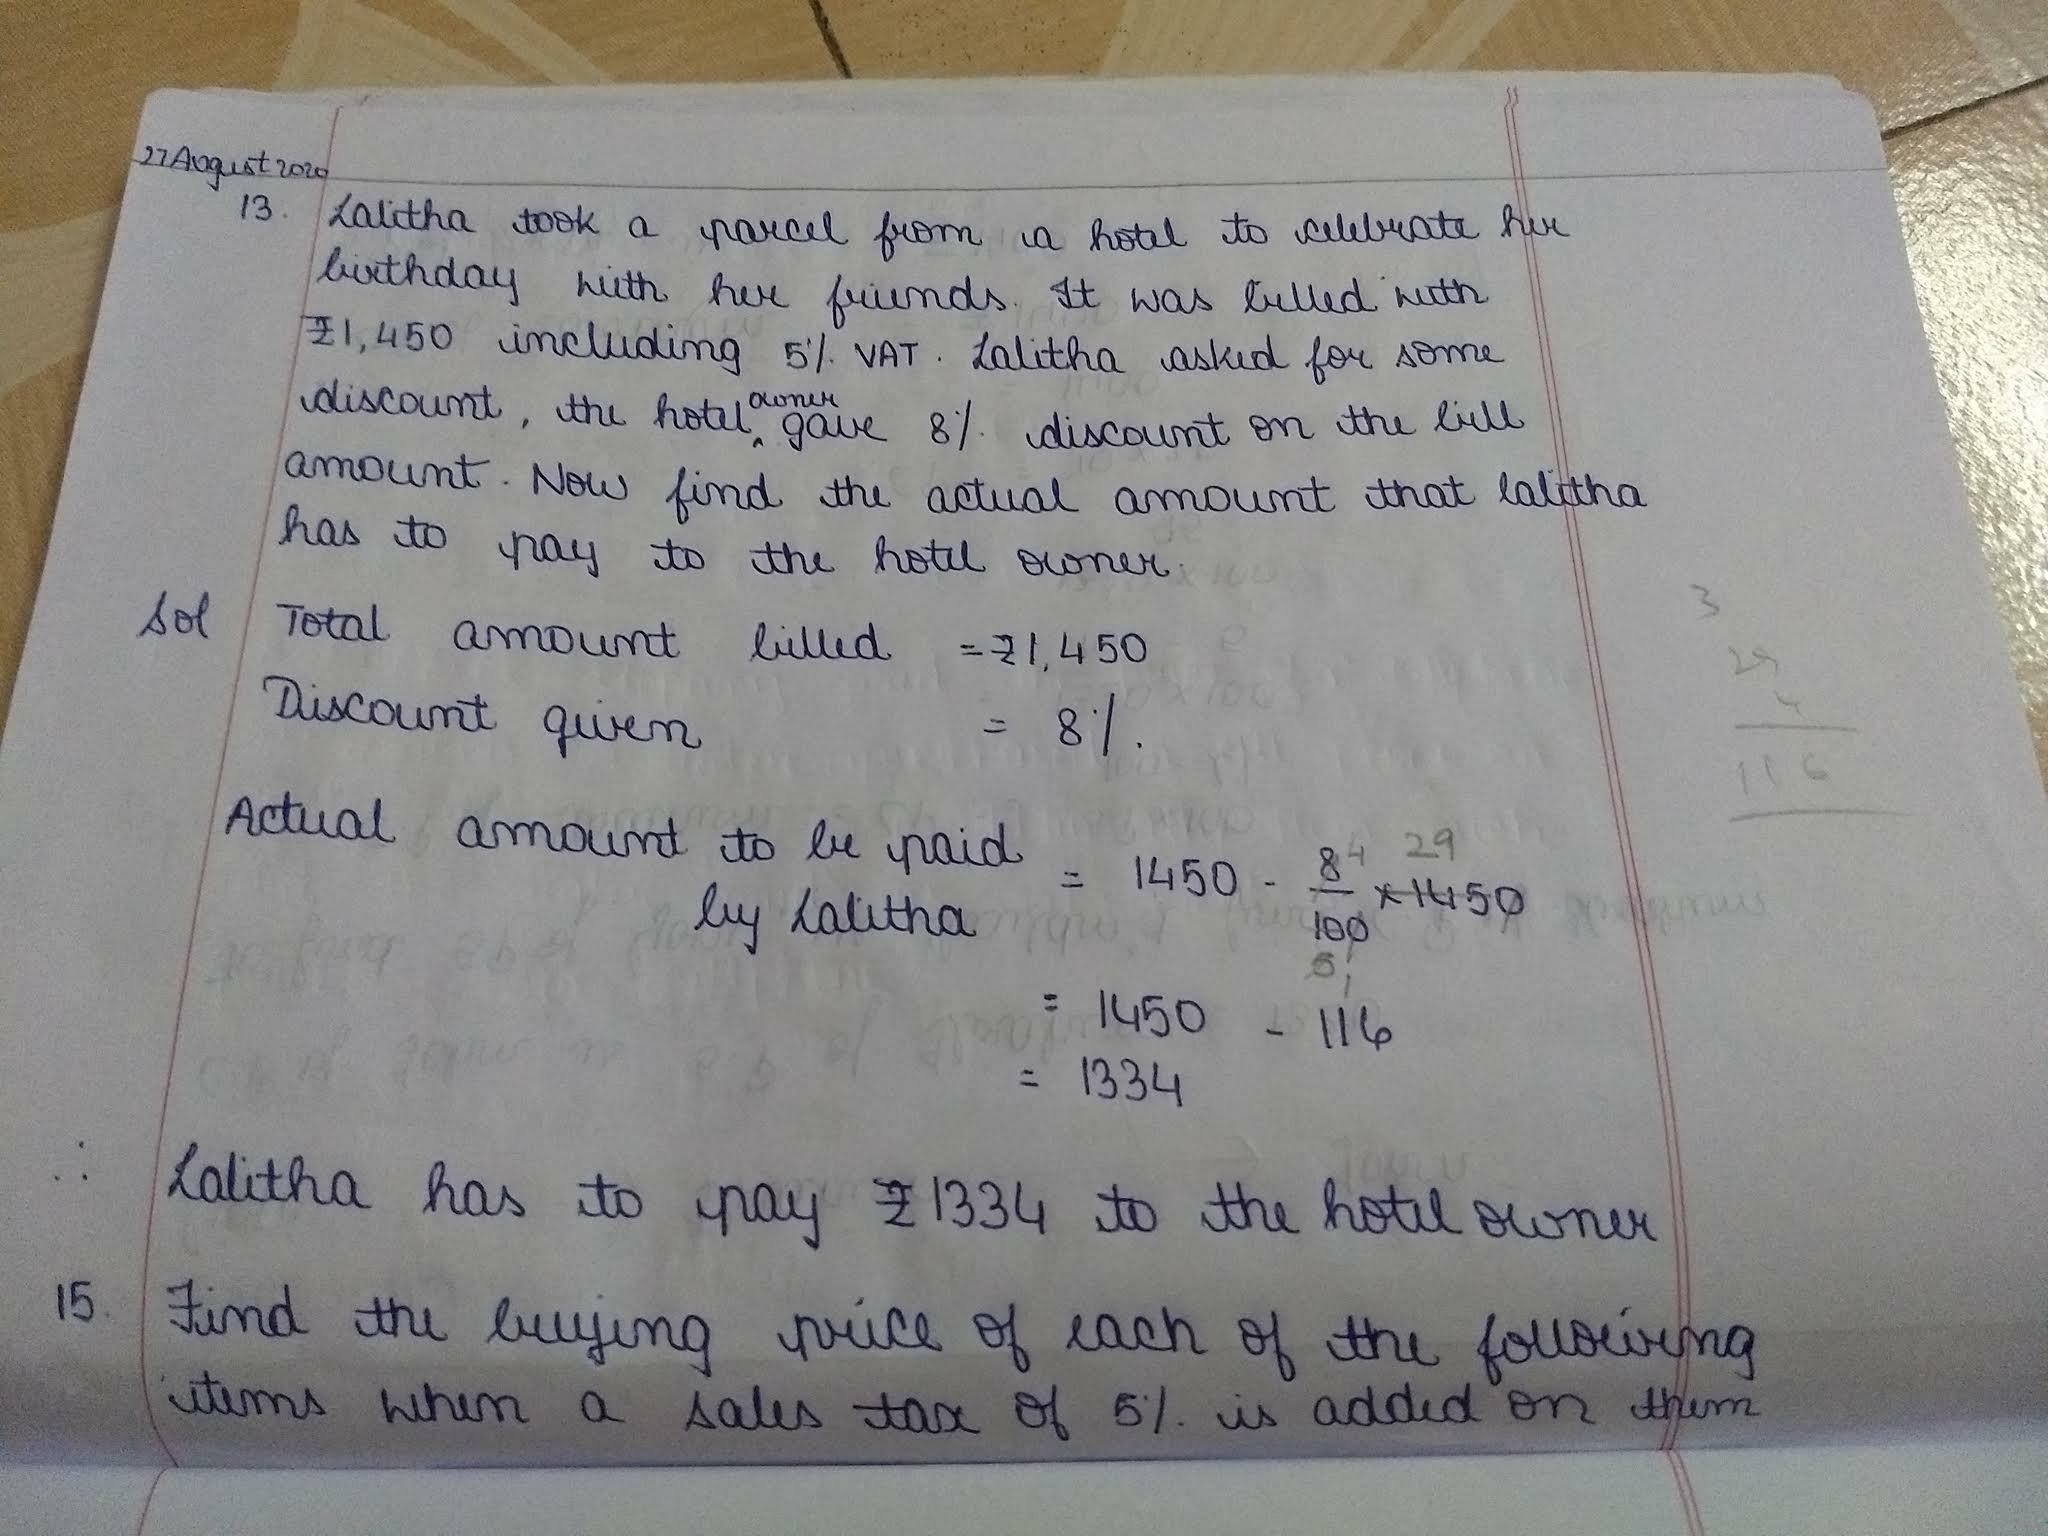 27 August 2020
13. Lalitha took a parcel from a hotel to celebrate her
birthday with her friends. It was billed with
₹1,450 including 5% VAT. Lalitha asked for some
discount, the hotel owner gave 8% discount on the bill
amount. Now find the actual amount that lalitha
has to pay to the hotel owner.
Sol Total amount billed = ₹1,450
Discount given = 8%.
Actual amount to be paid
by Lalitha = 1450 - 8/100 × 1450
4 29
5
1
= 1450 - 116
= 1334
∴ Lalitha has to pay ₹1334 to the hotel owner
15. Find the buying price of each of the following
items when a sales tax of 5% is added on them
3
29
4
116